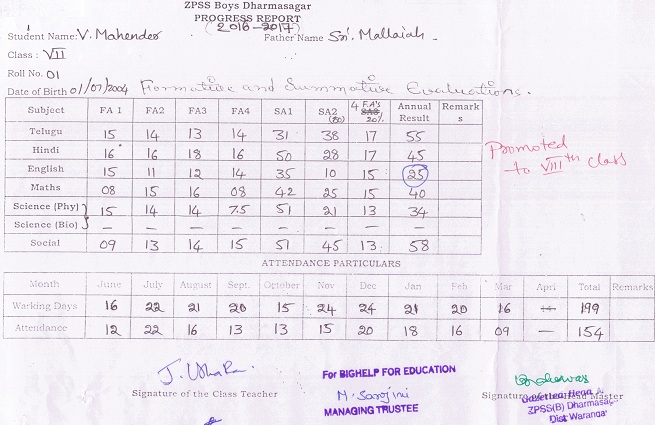 ZPSS Boys Dharmasagar
PROGRESS REPORT
(2016-2017)
Student Name: V. Mahender Father Name Sri. Mallaiah.
Class : VII
Roll No. 01
Date of Birth 01/07/2004 Formative and Summative Evaluations.
Subject FA 1 FA2 FA3 FA4 SA1 SA2 (80) 4 F.A's 20% Annual Result Remarks
Telugu 15 14 13 14 31 38 17 55
Hindi 16 16 18 16 50 28 17 45
English 15 11 12 14 35 10 15 25
Maths 08 15 16 08 42 25 15 40
Science (Phy) 15 14 14 7.5 51 21 13 34
Science (Bio) – – – – – – – –
Social 09 13 14 15 51 45 13 58
Promoted
to VIIIth class
ATTENDANCE PARTICULARS
Month June July August Sept. October Nov Dec Jan Feb Mar Apri Total Remarks
Working Days 16 22 21 20 15 24 24 21 20 16 199
Attendance 12 22 16 13 13 15 20 18 16 09 — 154
For BIGHELP FOR EDUCATION
Signature of the Class Teacher M. Sarojini Signature of the Head Master
MANAGING TRUSTEE
ZPSS(B) Dharmasagar
Dist Warangal